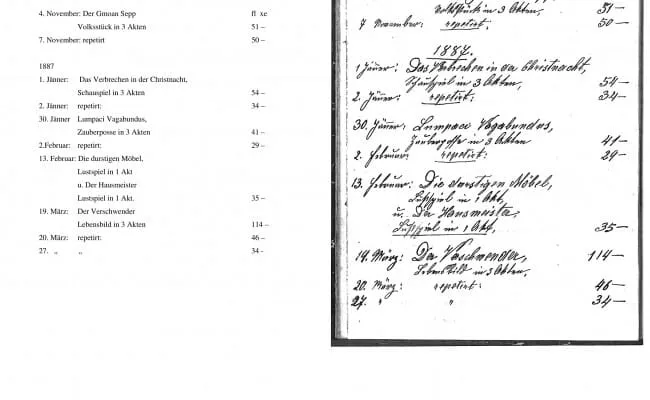 4. November: Der Gmoan Sepp fl xe
Volksstück in 3 Akten 51 –
7. November: repetirt 50 –
1887
1. Jänner: Das Verbrechen in der Christnacht,
Schauspiel in 3 Akten 54 –
2. Jänner: repetirt: 34 –
30. Jänner Lumpaci Vagabundus,
Zauberposse in 3 Akten 41 –
2.Februar: repetirt: 29 –
13. Februar: Die durstigen Möbel,
Lustspiel in 1 Akt
u. Der Hausmeister
Lustspiel in 1 Akt. 35 –
19. März: Der Verschwender
Lebensbild in 3 Akten 114 –
20. März: repetirt: 46 –
27. „ „ 34 –
Volksstück in 3 Akten, 51—
7 November: repetirt. 50—
1887.
1 Jäner: Das Verbrechen in da Christnacht,
Schauspiel in 3 Akten, 54—
2. Jäner: repetirt: 34—
30. Jänner: Lumpaci Vagabundus,
Zauberposse in 3 Akten 41—
2. Februar: repetirt: 29—
13. Februar: Die durstigen Möbel,
Lustspiel in 1 Akt,
u. Da Hausmeista,
Lustspiel in 1 Akt, 35—
19. März: Da Vaschwenda, 114—
Lebensbild in 3 Akten,
20. März: repetirt: 46—
27. " " 34—